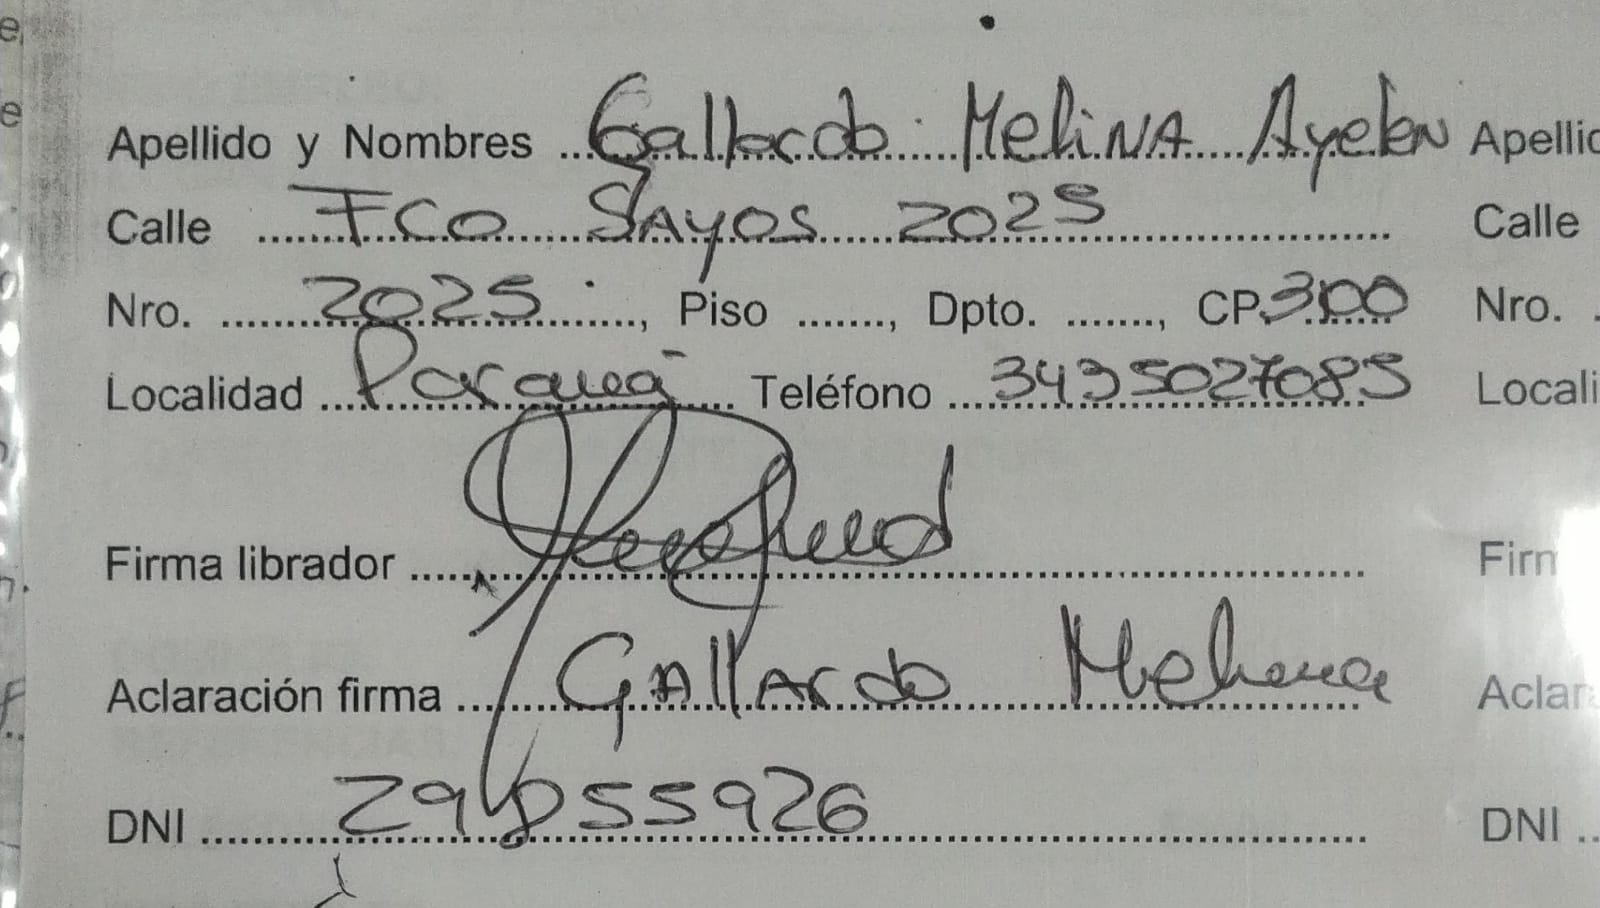 Apellido y Nombres Gallardo Melina Ayelen Apellid
Calle FCO SAYOS 2025 Calle
Nro. 2025, Piso ......., Dpto. ......., CP 3100 Nro.
Localidad Paraná Teléfono 3435027085 Locali
Firma librador Firm
Aclaración firma GAllardo Melina Aclar
DNI 29855926 DNI